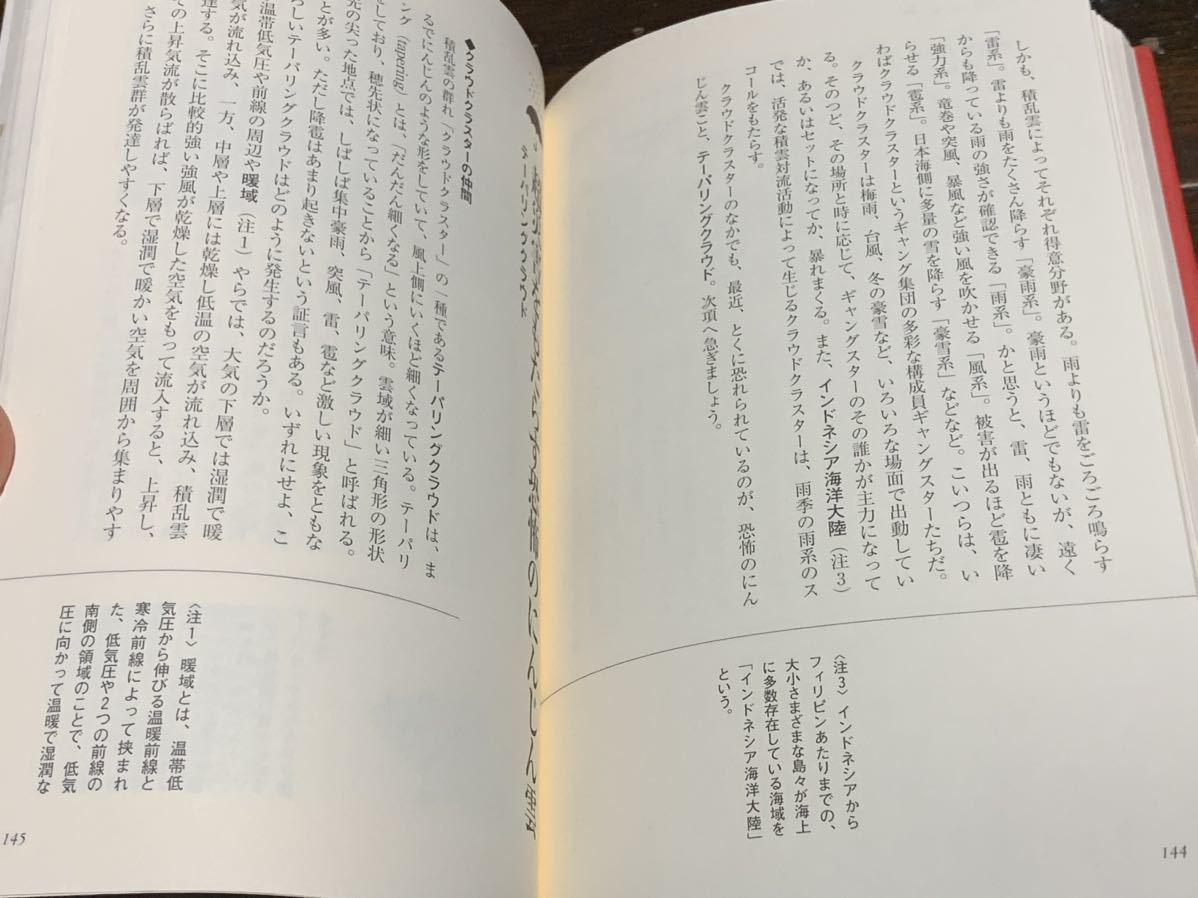 しかも、積乱雲によってそれぞれ得意分野がある。雨よりも雷をごろごろ鳴らす
「雷系」。雷よりも雨をたくさん降らす「豪雨系」。豪雨というほどでもないが、遠く
からも降っている雨の強さが確認できる「雨系」。かと思うと、雷、雨ともに凄い
「強力系」。竜巻や突風、暴風など強い風を吹かせる「風系」。被害が出るほど雹を降
らせる「雹系」。日本海側に多量の雪を降らす「豪雪系」などなど。こいつらは、い
わばクラウドクラスターというギャング集団の多彩な構成員ギャングスターたちだ。
クラウドクラスターは梅雨、台風、冬の豪雪など、いろいろな場面で出動してい
る。そのつど、その場所と時に応じて、ギャングスターのその誰かが主力になって
か、あるいはセットになってか、暴れまくる。また、インドネシア海洋大陸（注3）
では、活発な積雲対流活動によって生じるクラウドクラスターは、雨季の雨系のス
コールをもたらす。
クラウドクラスターのなかでも、最近、とくに恐れられているのが、恐怖のにん
じん雲こと、テーパリングクラウド。次項へ急ぎましょう。
〈注3〉インドネシアから
フィリピンあたりまでの、
大小さまざまな島々が海上
に多数存在している海域を
「インドネシア海洋大陸」
という。
144
をもたらす恐怖のにんじん雲
テーパリングクラウド
◆クラウドクラスターの仲間
積乱雲の群れ「クラウドクラスター」の一種であるテーパリングクラウドは、ま
るでにんじんのような形をしていて、風上側にいくほど細くなっている。テーパリ
ング（tapering）とは、「だんだん細くなる」という意味。雲域が細い三角形の形状
をしており、穂先状になっていることから「テーパリングクラウド」と呼ばれる。
先の尖った地点では、しばしば集中豪雨、突風、雷、雹など激しい現象をともな
ことが多い。ただし降雹はあまり起きないという証言もある。いずれにせよ、こ
ろしいテーパリングクラウドはどのように発生するのだろうか。
温帯低気圧や前線の周辺や暖域（注1）やらでは、大気の下層では湿潤で暖
気が流れ込み、一方、中層や上層には乾燥し低温の空気が流れ込み、積乱雲
達する。そこに比較的強い強風が乾燥した空気をもって流入すると、上昇し、
その上昇気流が散らばれば、下層で湿潤で暖かい空気を周囲から集まりやす
さらに積乱雲群が発達しやすくなる。
〈注1〉暖域とは、温帯低
気圧から伸びる温暖前線と
寒冷前線によって挟まれ
た、低気圧や2つの前線の
南側の領域のことで、低気
圧に向かって温暖で湿潤な
145